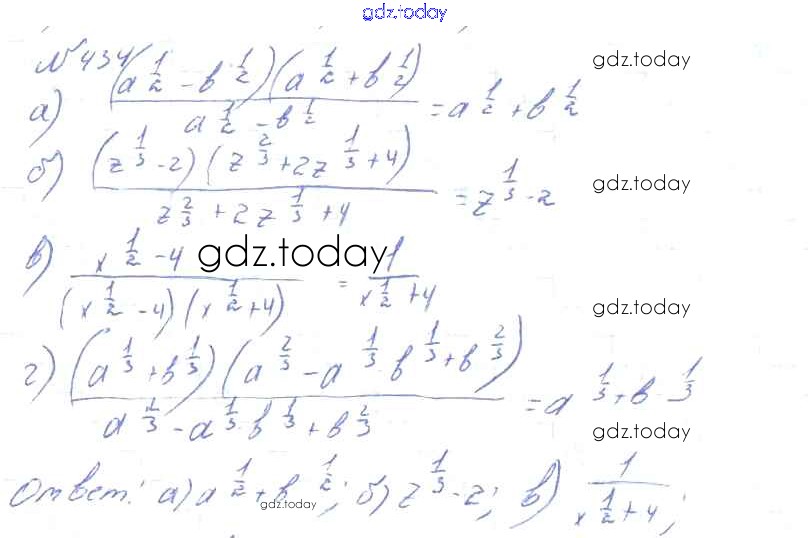 gdz.today
№ 434
gdz.today
а) (a^{1/2} - b^{1/2})(a^{1/2} + b^{1/2}) / (a^{1/2} - b^{1/2}) = a^{1/2} + b^{1/2}
б) (z^{1/3} - 2)(z^{2/3} + 2z^{1/3} + 4) / (z^{2/3} + 2z^{1/3} + 4) = z^{1/3} - 2
gdz.today
в) (x^{1/2} - 4) / ((x^{1/2} - 4)(x^{1/2} + 4)) = 1 / (x^{1/2} + 4)
gdz.today
gdz.today
г) (a^{1/3} + b^{1/3})(a^{2/3} - a^{1/3} b^{1/3} + b^{2/3}) / (a^{2/3} - a^{1/3} b^{1/3} + b^{2/3}) = a^{1/3} + b^{1/3}
gdz.today
Ответ: а) a^{1/2} + b^{1/2}; б) z^{1/3} - 2; в) 1 / (x^{1/2} + 4);
gdz.today